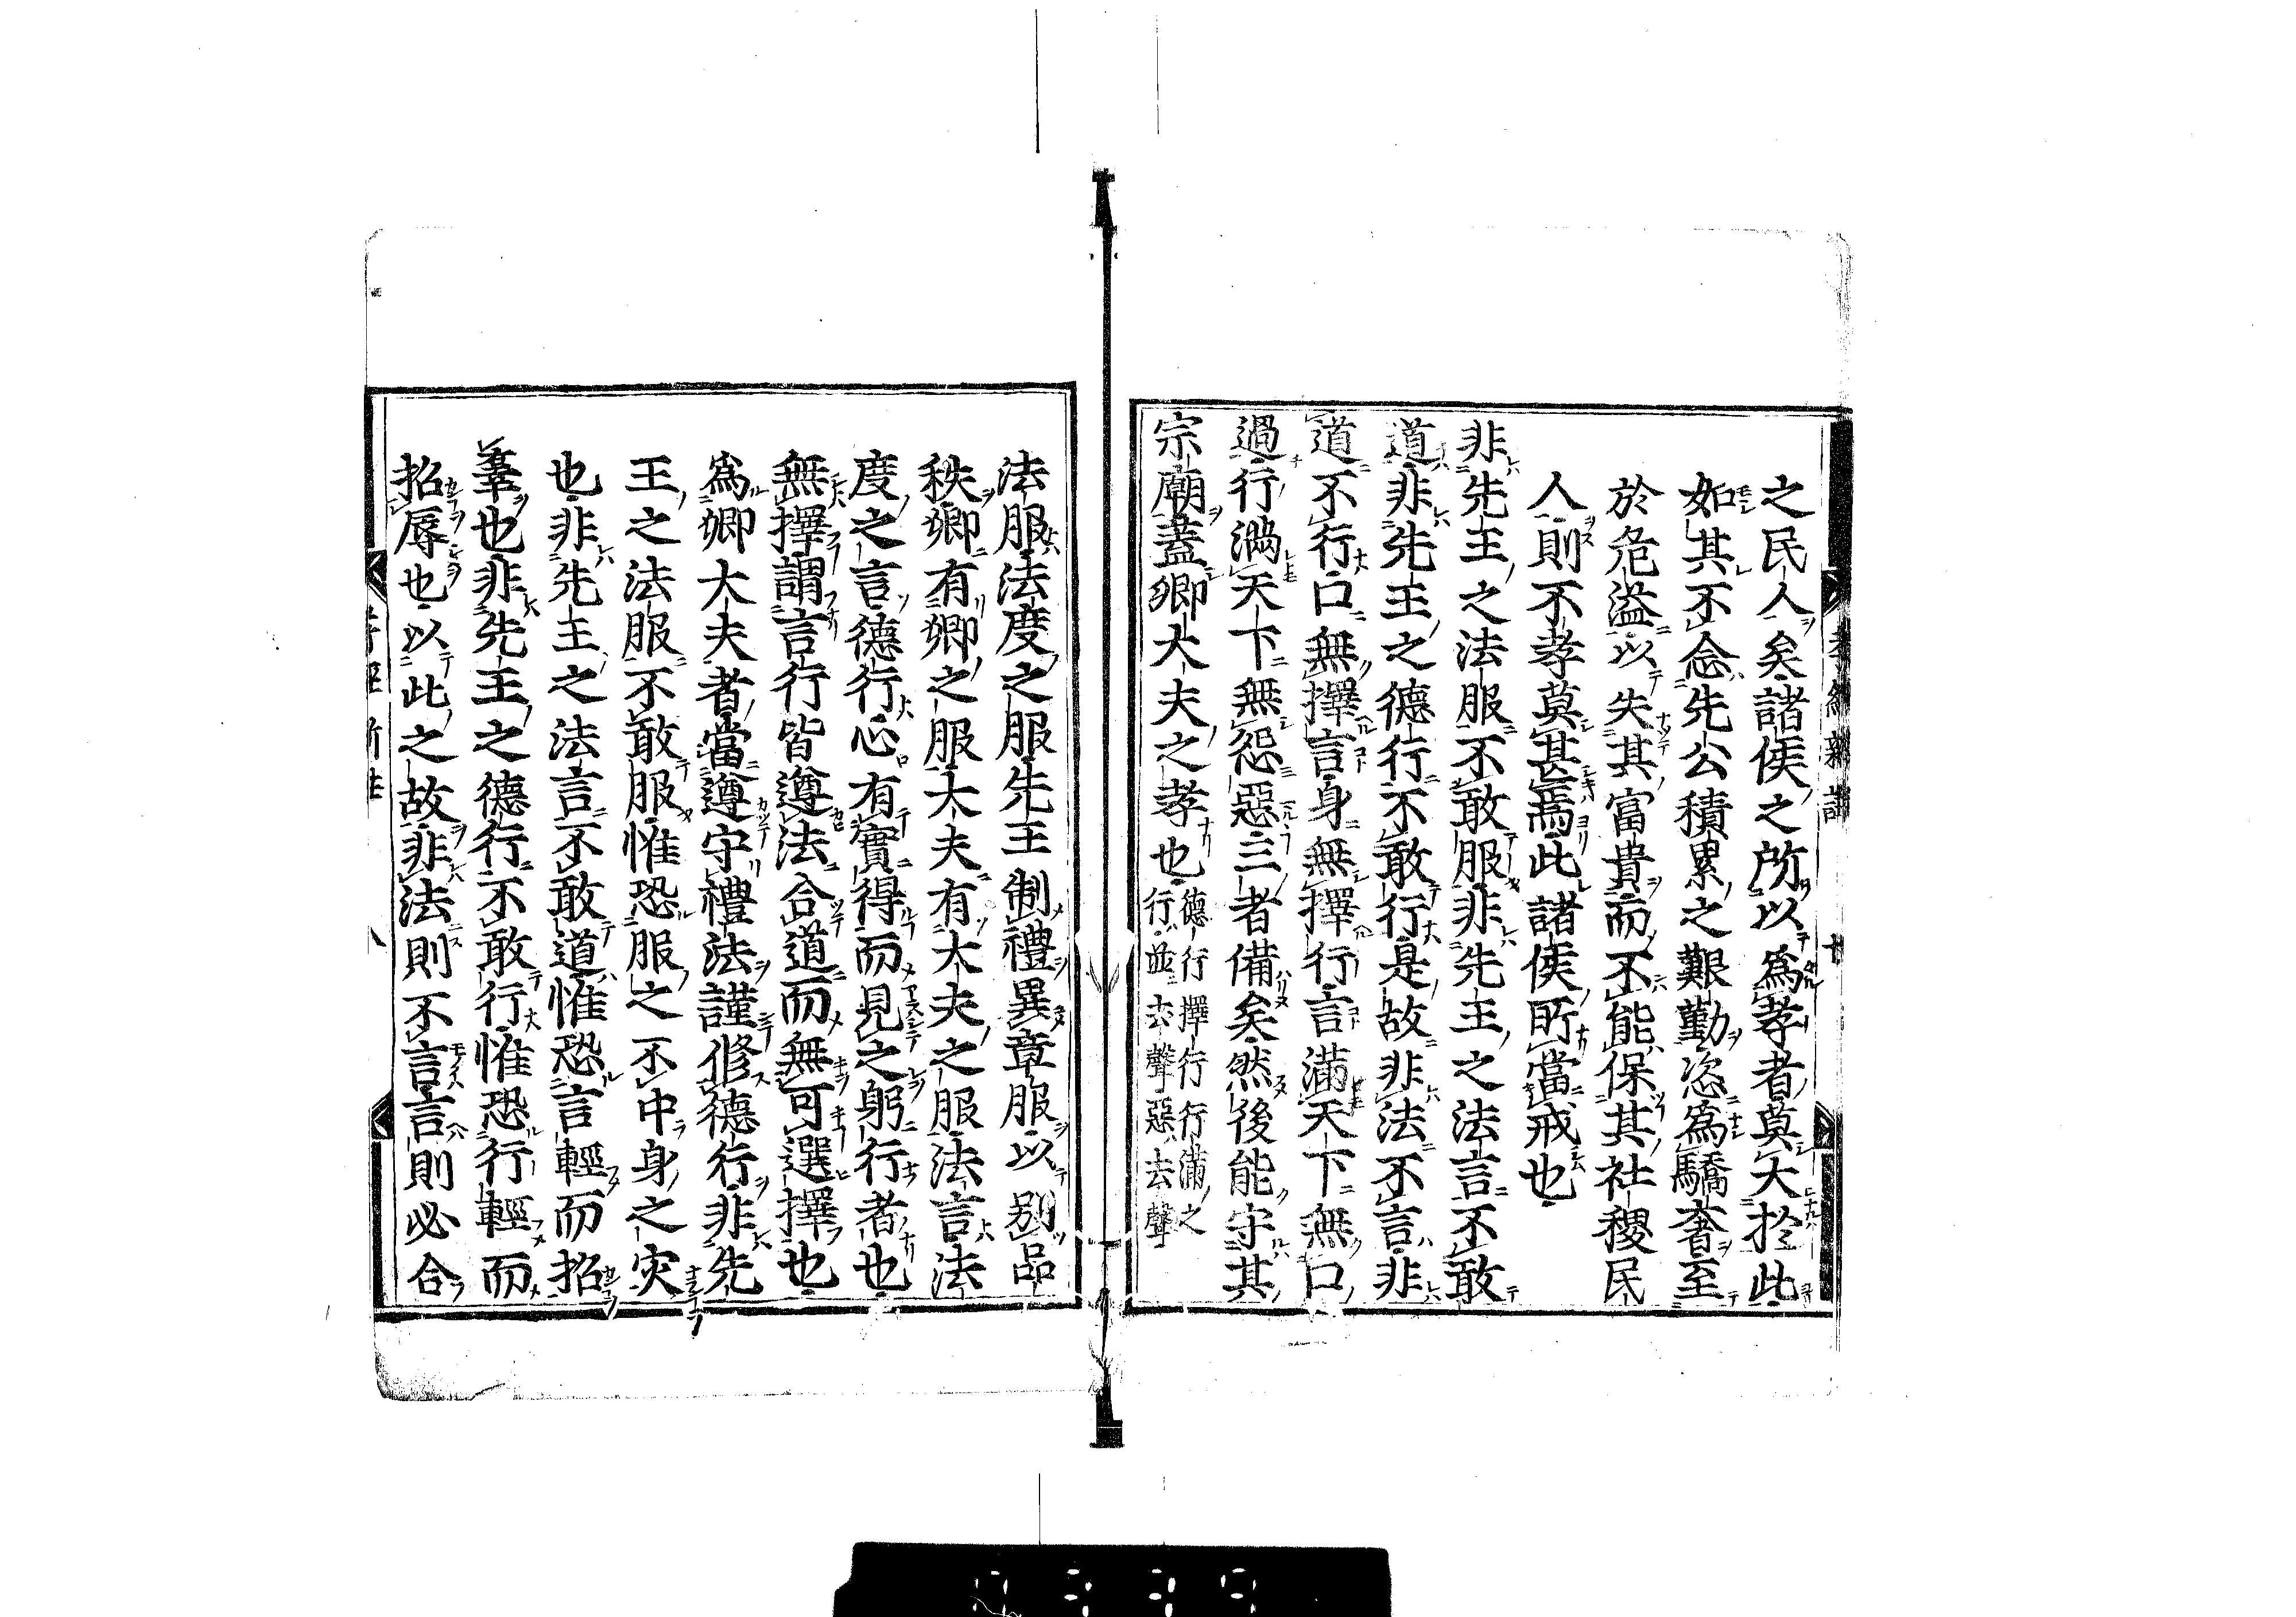 之民人矣諸侯之所以爲孝者莫大於此
如其不念先公積累之艱勤恣爲驕奢至
於危溢以失其富貴而不能保其社稷民
人則不孝莫甚焉此諸侯所當戒也
非先王之法服不敢服非先王之法言不敢
道非先王之德行不敢行是故非法不言非
道不行口無擇言身無擇行言滿天下無口
過行滿天下無怨惡三者備矣然後能守其
宗廟蓋卿大夫之孝也德行擇行行滿之
行並去聲惡去聲
法服法度之服先王制禮異章服以别品
秩卿有卿之服大夫有大夫之服法言法
度之言德行心有實得而見之躬行者也
無擇謂言行皆遵法合道而無可選擇也
爲卿大夫者當遵守禮法謹修德行非先
王之法服不敢服惟恐服之不中身之灾
也非先王之法言不敢道惟恐言輕而招
辜也非先王之德行不敢行惟恐行輕而
招辱也以此之故非法則不言言則必合